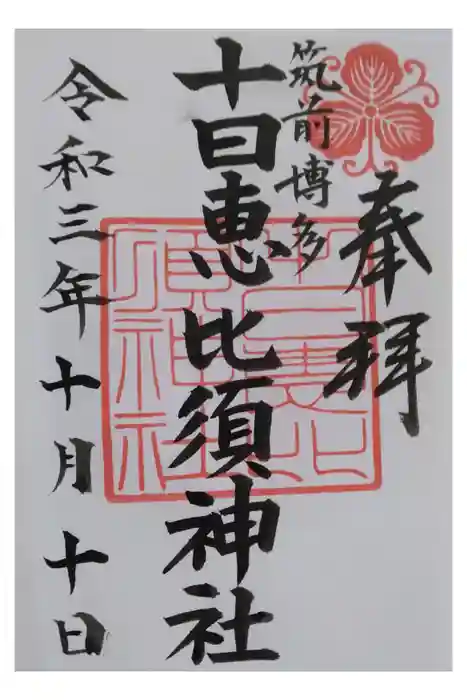 奉拝
筑前博多
十日恵比須神社
令和三年十月十日
十日恵比
須神社